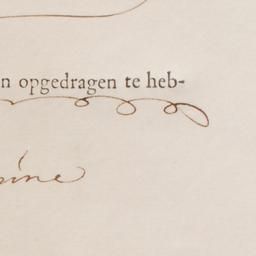 n opgedragen te heb-